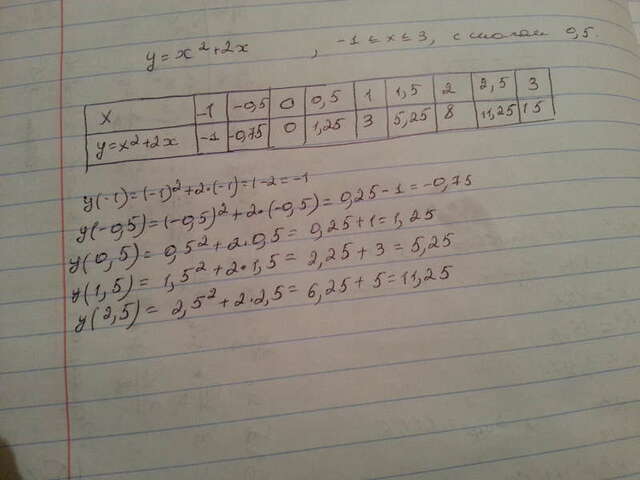 y=x²+2x , -1≤x≤3, с шагом 0,5.
x -1 -0,5 0 0,5 1 1,5 2 2,5 3
y=x²+2x -1 -0,75 0 1,25 3 5,25 8 11,25 15
y(-1)=(-1)²+2·(-1)=1-2=-1
y(-0,5)=(-0,5)²+2·(-0,5)=0,25-1=-0,75
y(0,5)=0,5²+2·0,5=0,25+1=1,25
y(1,5)=1,5²+2·1,5=2,25+3=5,25
y(2,5)=2,5²+2·2,5=6,25+5=11,25